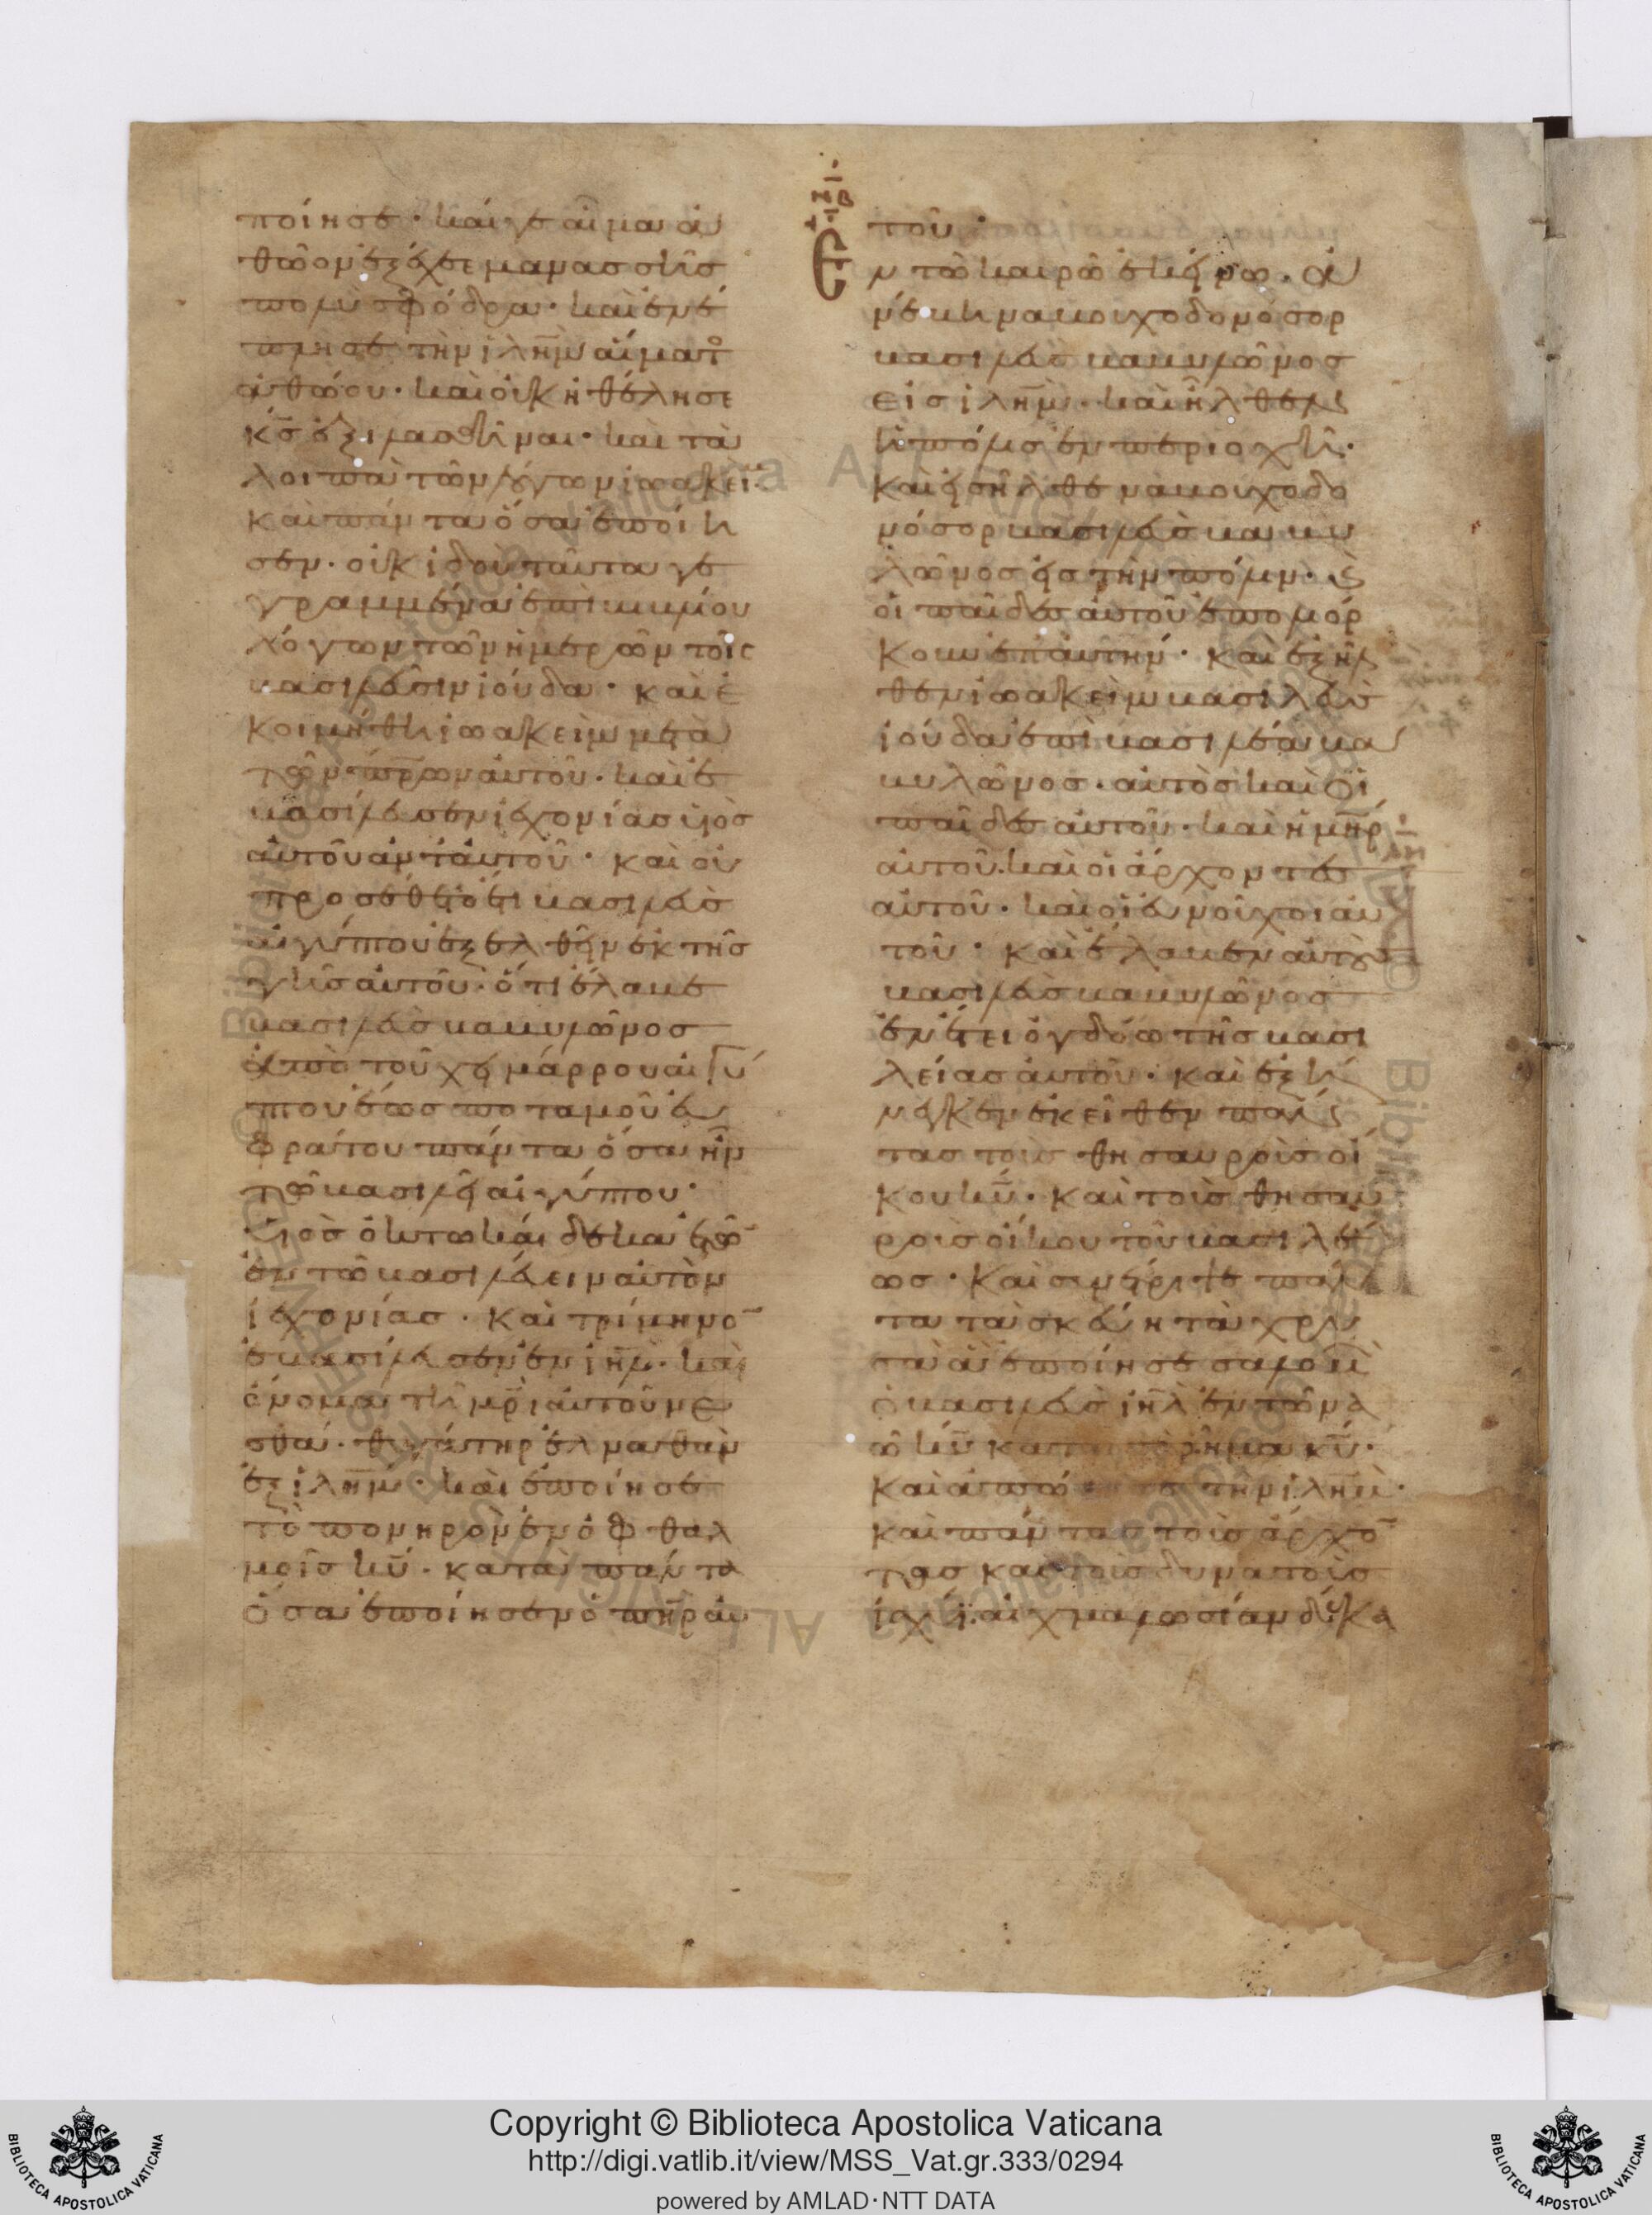 ποίησε· καί γε αἷμα ἀ
θῶον ἐξέχεε μανασσῆς
πολὺ σφόδρα· καὶ ἐνέ
πλησε τὴν ἰλῆμ αἵματο
ἀθώου· καὶ οὐκ ἠθέλησε
κ̅ς̅ ἐξιλασθῆναι· καὶ τὰ
λοιπὰ τῶν λόγων ἰωακείμ·
καὶ πάντα ὅσα ἐποίη
σεν· οὐκ ἰδοὺ ταῦτα γε
γραμμένα ἐπὶ βιβλίου
λόγων τῶν ἡμερῶν τοῖς
βασιλεῦσιν ἰούδα· καὶ ἐ
κοιμήθη ἰωακεὶμ μετὰ
τῶν π̅ρ̅ων αὐτοῦ· καὶ ἐ
βασίλευσεν ἰεχονίας υἱὸς
αὐτοῦ ἀντ' αὐτοῦ· καὶ οὐ
προσέθετο ἔτι βασιλεὺς
αἰγύπτου ἐξελθεῖν ἐκ τῆς
γῆς αὐτοῦ· ὅτι ἔλαβε
βασιλεὺς βαβυλῶνος
ἀπὸ τοῦ χειμάρρου αἰγύ
πτου ἕως ποταμοῦ εὐ
φράτου πάντα ὅσα ἦν
τῷ βασιλεῖ αἰγύπτου·
υἱὸς ὀκτωκαίδεκα ἐτῶ
ἐν τῷ βασιλεύειν αὐτὸν
ἰεχονίας· καὶ τρίμηνο
ἐβασίλευσεν ἐν ἰλῆμ· καὶ
ὄνομα τῆ μ̅ρ̅ι αὐτοῦ νε
σθά· θυγάτηρ ἐλναθὰν
ἐξ ἰλῆμ· καὶ ἐποίησε
τὸ πονηρὸν ἐν ὀφθαλ
μοῖς κ̅υ̅· κατὰ πάντα
ὅσα ἐποίησεν ὁ π̅η̅ρ αὐ
ιβ
τοῦ·
Εν τῷ καιρῷ ἐκείνω· ἀ
νέβη ναβουχοδονόσορ
βασιλεὺς βαβυλῶνος
εἰς ἰλῆμ· καὶ ἦλθεν
ἡ πόλις ἐν περιοχῆ·
καὶ εἰσῆλθε ναβουχοδο
νόσορ βασιλεὺς βαβυ
λῶνος εἰς τὴν πόλιν· καὶ
οἱ παῖδες αὐτοῦ ἐπολιόρ
κουν ἐπ' αὐτήν· καὶ ἐξῆλ
θεν ἰωακεὶμ βασιλεὺς
ἰούδα ἐπὶ βασιλέα βα
βυλῶνος· αὐτὸς καὶ οἱ
παῖδες αὐτοῦ· καὶ ἡ μ̅η̅ρ
αὐτοῦ· καὶ οἱ ἄρχοντες
αὐτοῦ· καὶ οἱ εὐνοῦχοι αὐ
τοῦ· καὶ ἔλαβεν αὐτοὺς
βασιλεὺς βαβυλῶνος
ἐν ἔτει ὀγδόω τῆς βασι
λείας αὐτοῦ· καὶ ἐξή
νεγκεν ἐκεῖθεν πάν
τας τοὺς θησαυροὺς οἴ
κου κ̅υ̅· καὶ τοὺς θησαυ
ροὺς οἴκου τοῦ βασιλέ
ως· καὶ συνέτριψε πάν
τα τὰ σκεύη τὰ χρυ
σᾶ ἃ ἐποίησε σαλομὼν
ὁ βασιλεὺς ἰ̅η̅λ ἐν τῶ να
ῶ κ̅υ̅ κατὰ τὸ ρῆμα κ̅υ̅·
καὶ ἀπώκισε τὴν ἰλῆμ·
καὶ πάντας τοὺς ἄρχο
τας καὶ τοὺς δυνατοὺς
ἰσχύϊ· αἰχμαλωσίαν δέκα
Copyright © Biblioteca Apostolica Vaticana
http://digi.vatlib.it/view/MSS_Vat.gr.333/0294
powered by AMLAD·NTT DATA
BIBLIOTECA APOSTOLICA VATICANA
BIBLIOTECA APOSTOLICA VATICANA